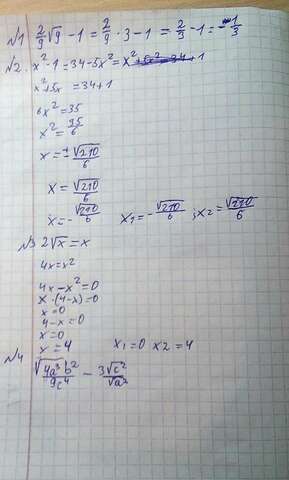 №1 2/9 √9 - 1 = 2/9 · 3 - 1 = 2/3 - 1 = - 1/3
№2. x² - 1 = 34 - 5x² = x² + 5x² = 34 + 1
x² + 5x = 34 + 1
6x² = 35
x² = 35/6
x = ± √210/6
x = √210/6
x = - √210/6 x₁ = - √210/6 ; x₂ = √210/6
№3 2√x = x
4x = x²
4x - x² = 0
x · (4 - x) = 0
x = 0
4 - x = 0
x = 0
x = 4 x₁ = 0 x2 = 4
№4
√4a³b²/9c⁴ - 3√c²/√a²